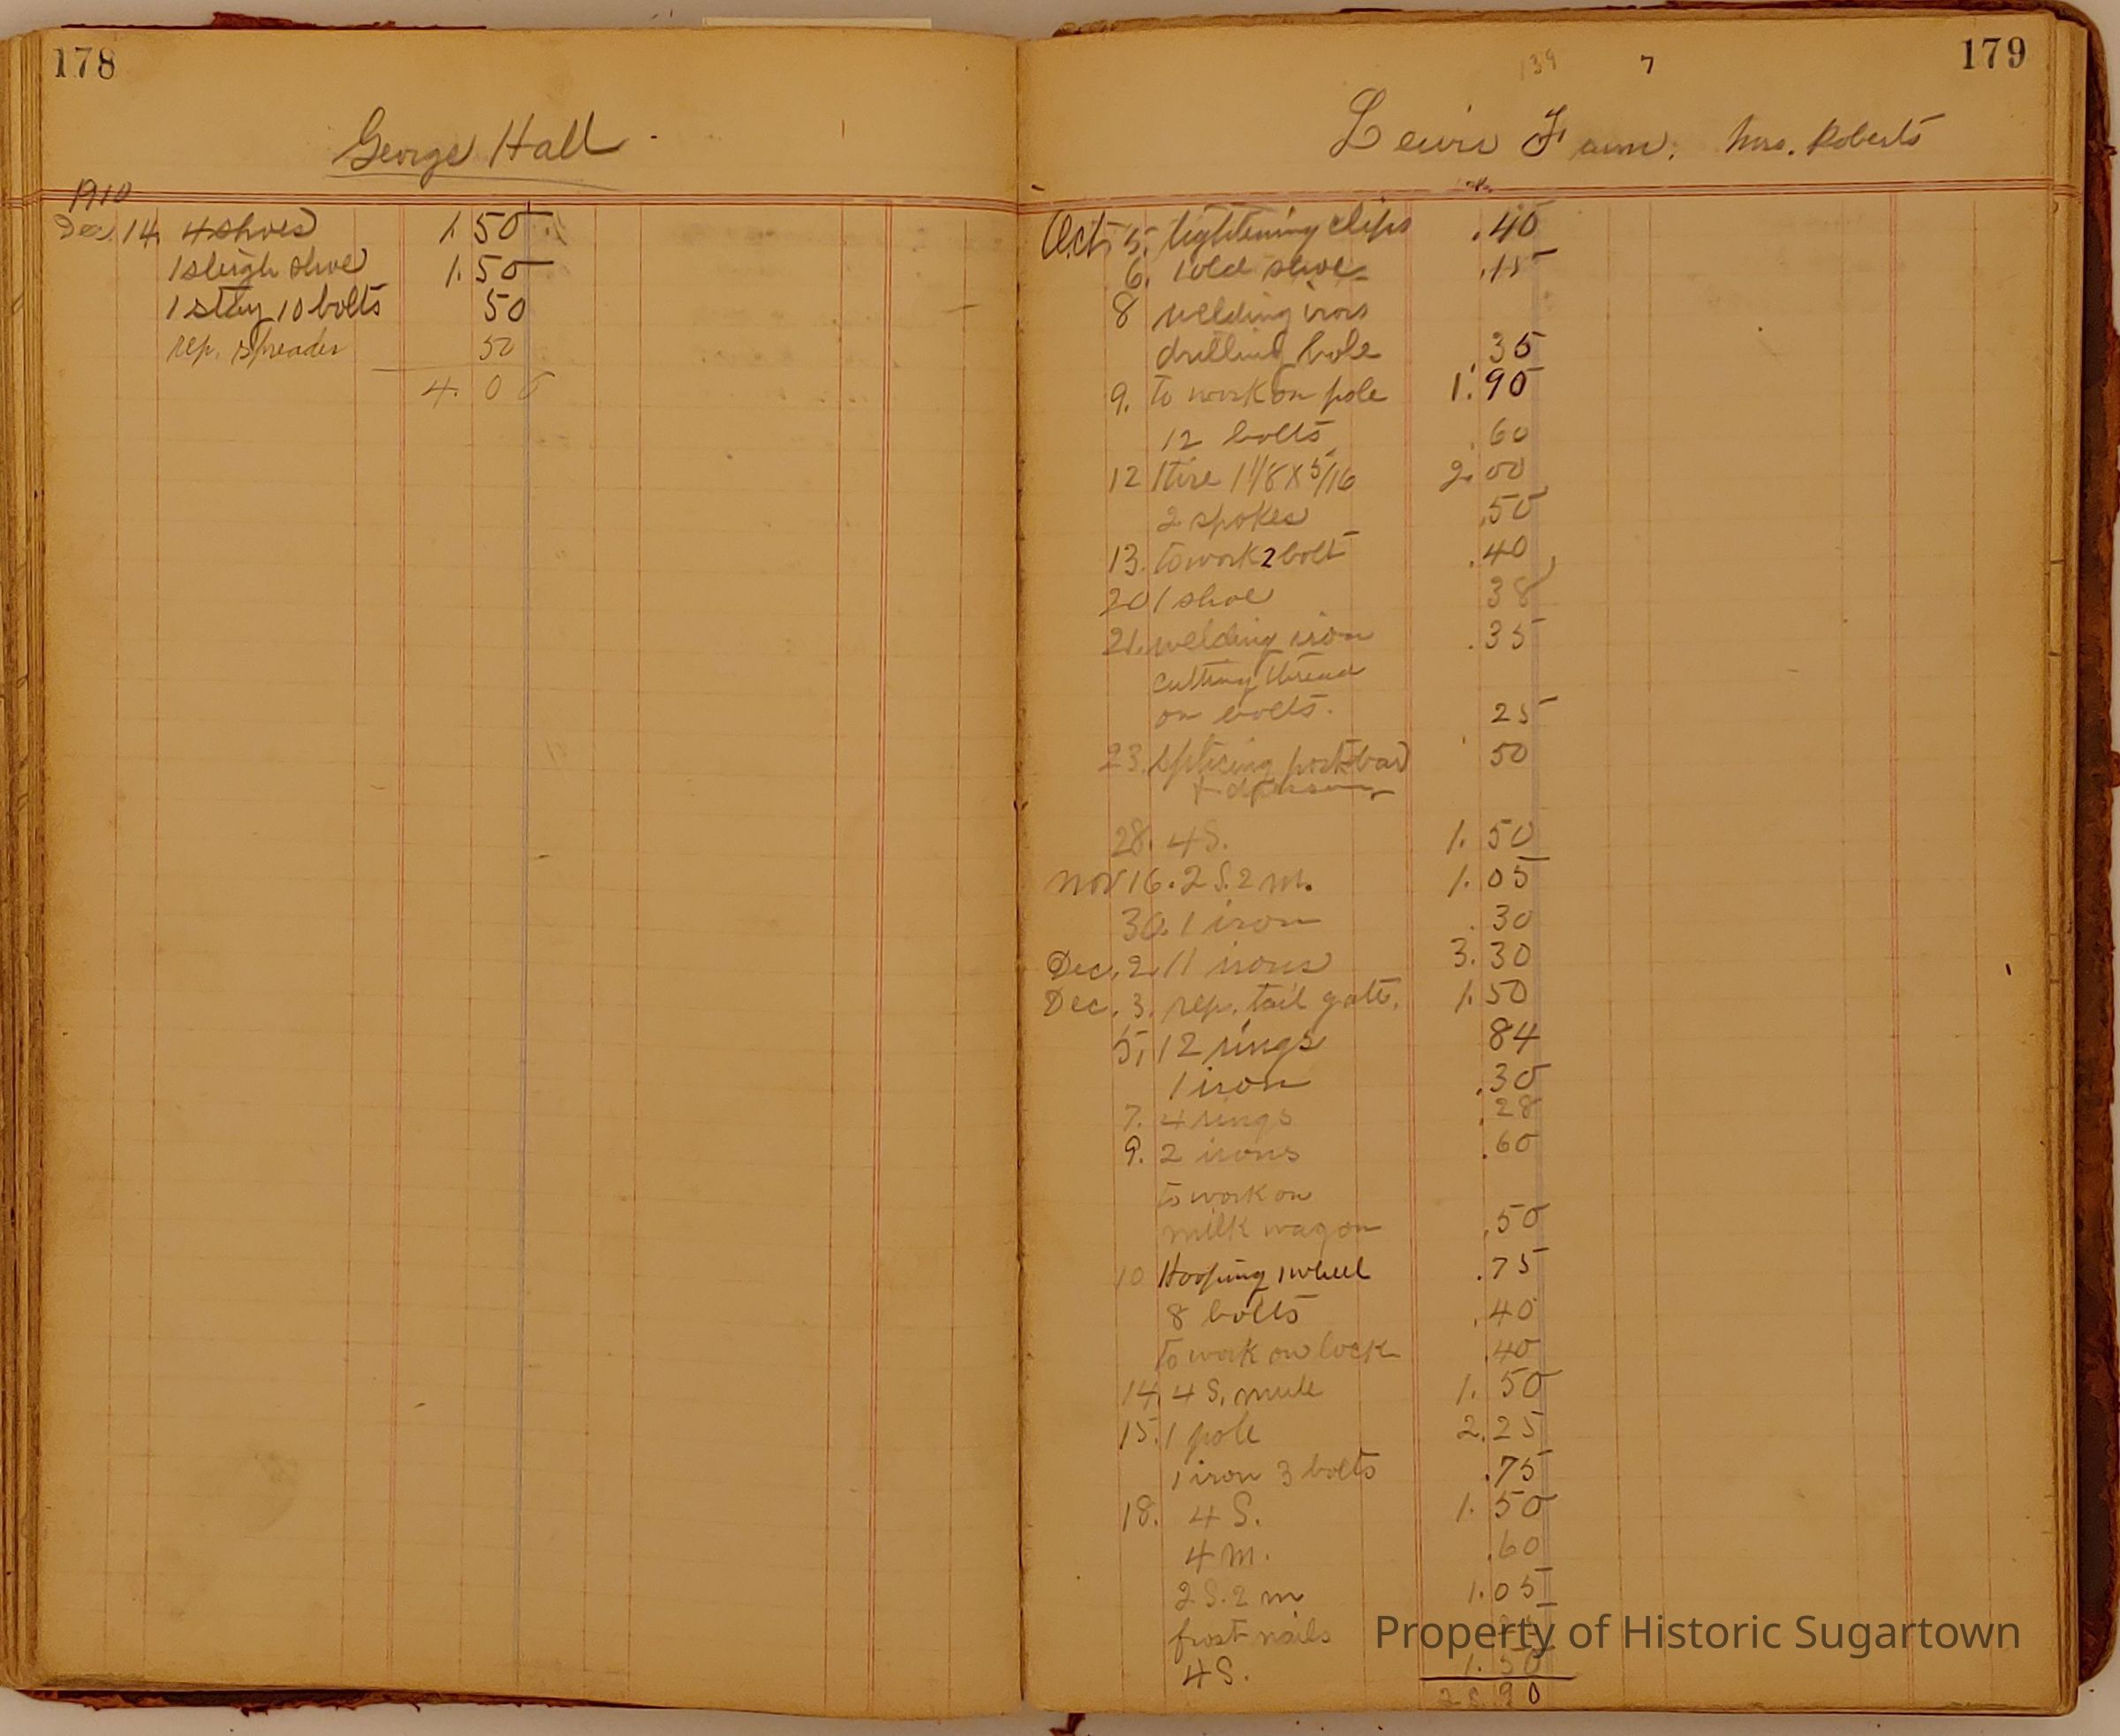 178
George Hall
1910
Dec. 14. 4 shoes 1.50
1 sleigh shoe 1.50
1 stay 10 bolts 50
rep. spreader 50
4.00
139 7 179
Lewis Farm. Mrs. Roberts
Oct. 5. tightening clips .40
6. 1 old shoe .15
8 welding irons
drilling hole .35
9. to work on pole 1.90
12 bolts .60
12 1 tire 1 1/8 x 5/16 2.00
2 spokes .50
13. to work 2 bolt .40
20 1 shoe 38
21. welding iron .35
cutting thread
on bolts. 25
23. splicing 50
28. 4 S. 1.50
Nov 16. 2 S. 2 m. 1.05
30. 1 iron .30
Dec. 2. 11 irons 3.30
Dec. 3. rep. tail gate. 1.50
5, 12 rings 84
1 iron .30
7. 4 rings .28
9. 2 irons .60
to work on
milk wagon .50
10 Hooping 1 wheel .75
8 bolts .40
to work on lock .40
14. 4 S. mule 1.50
15. 1 pole 2.25
1 iron 3 bolts .75
18. 4 S. 1.50
4 m. .60
2 S. 2 m 1.05
frost nails
4 S. 1.50
28.90
Property of Historic Sugartown